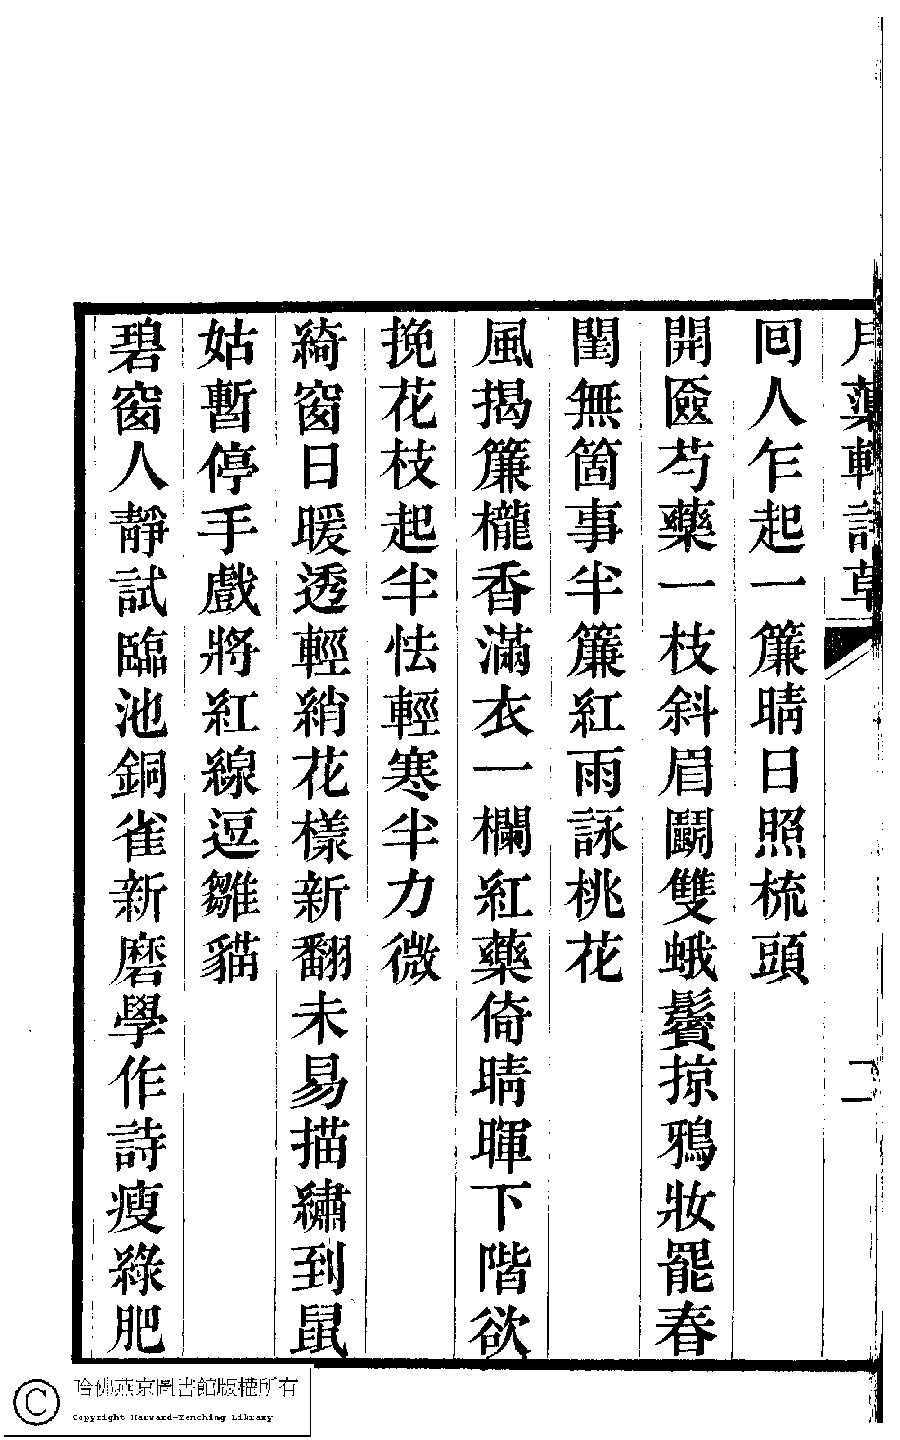 月蕖軒詩草
二
囘人乍起一簾晴日照梳頭
開匳芍藥一枝斜眉鬭雙蛾鬢掠鴉妝罷春
閨無箇事半簾紅雨詠桃花
風揭簾櫳香滿衣一欄紅藥倚晴暉下階欲
挽花枝起半怯輕寒半力微
綺窗日暖透輕綃花樣新翻未易描繡到鼠
姑暫停手戲將紅線逗雛貓
碧窗人靜試臨池銅雀新磨學作詩瘦綠肥
哈佛燕京圖書館版權所有
Copyright Harvard-Yenching Library